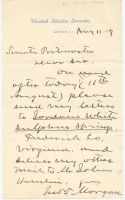 United States Senate,
Aug 11. 8
Senate Postmaster
Dear Sir.
On and
after today (11th
August) please
send my letters
to Jordans White
Sulphur Springs
Frederick Co.
Virginia, and
deliver my other
mail to Mr. John
yrs
Jno. T. Morgan